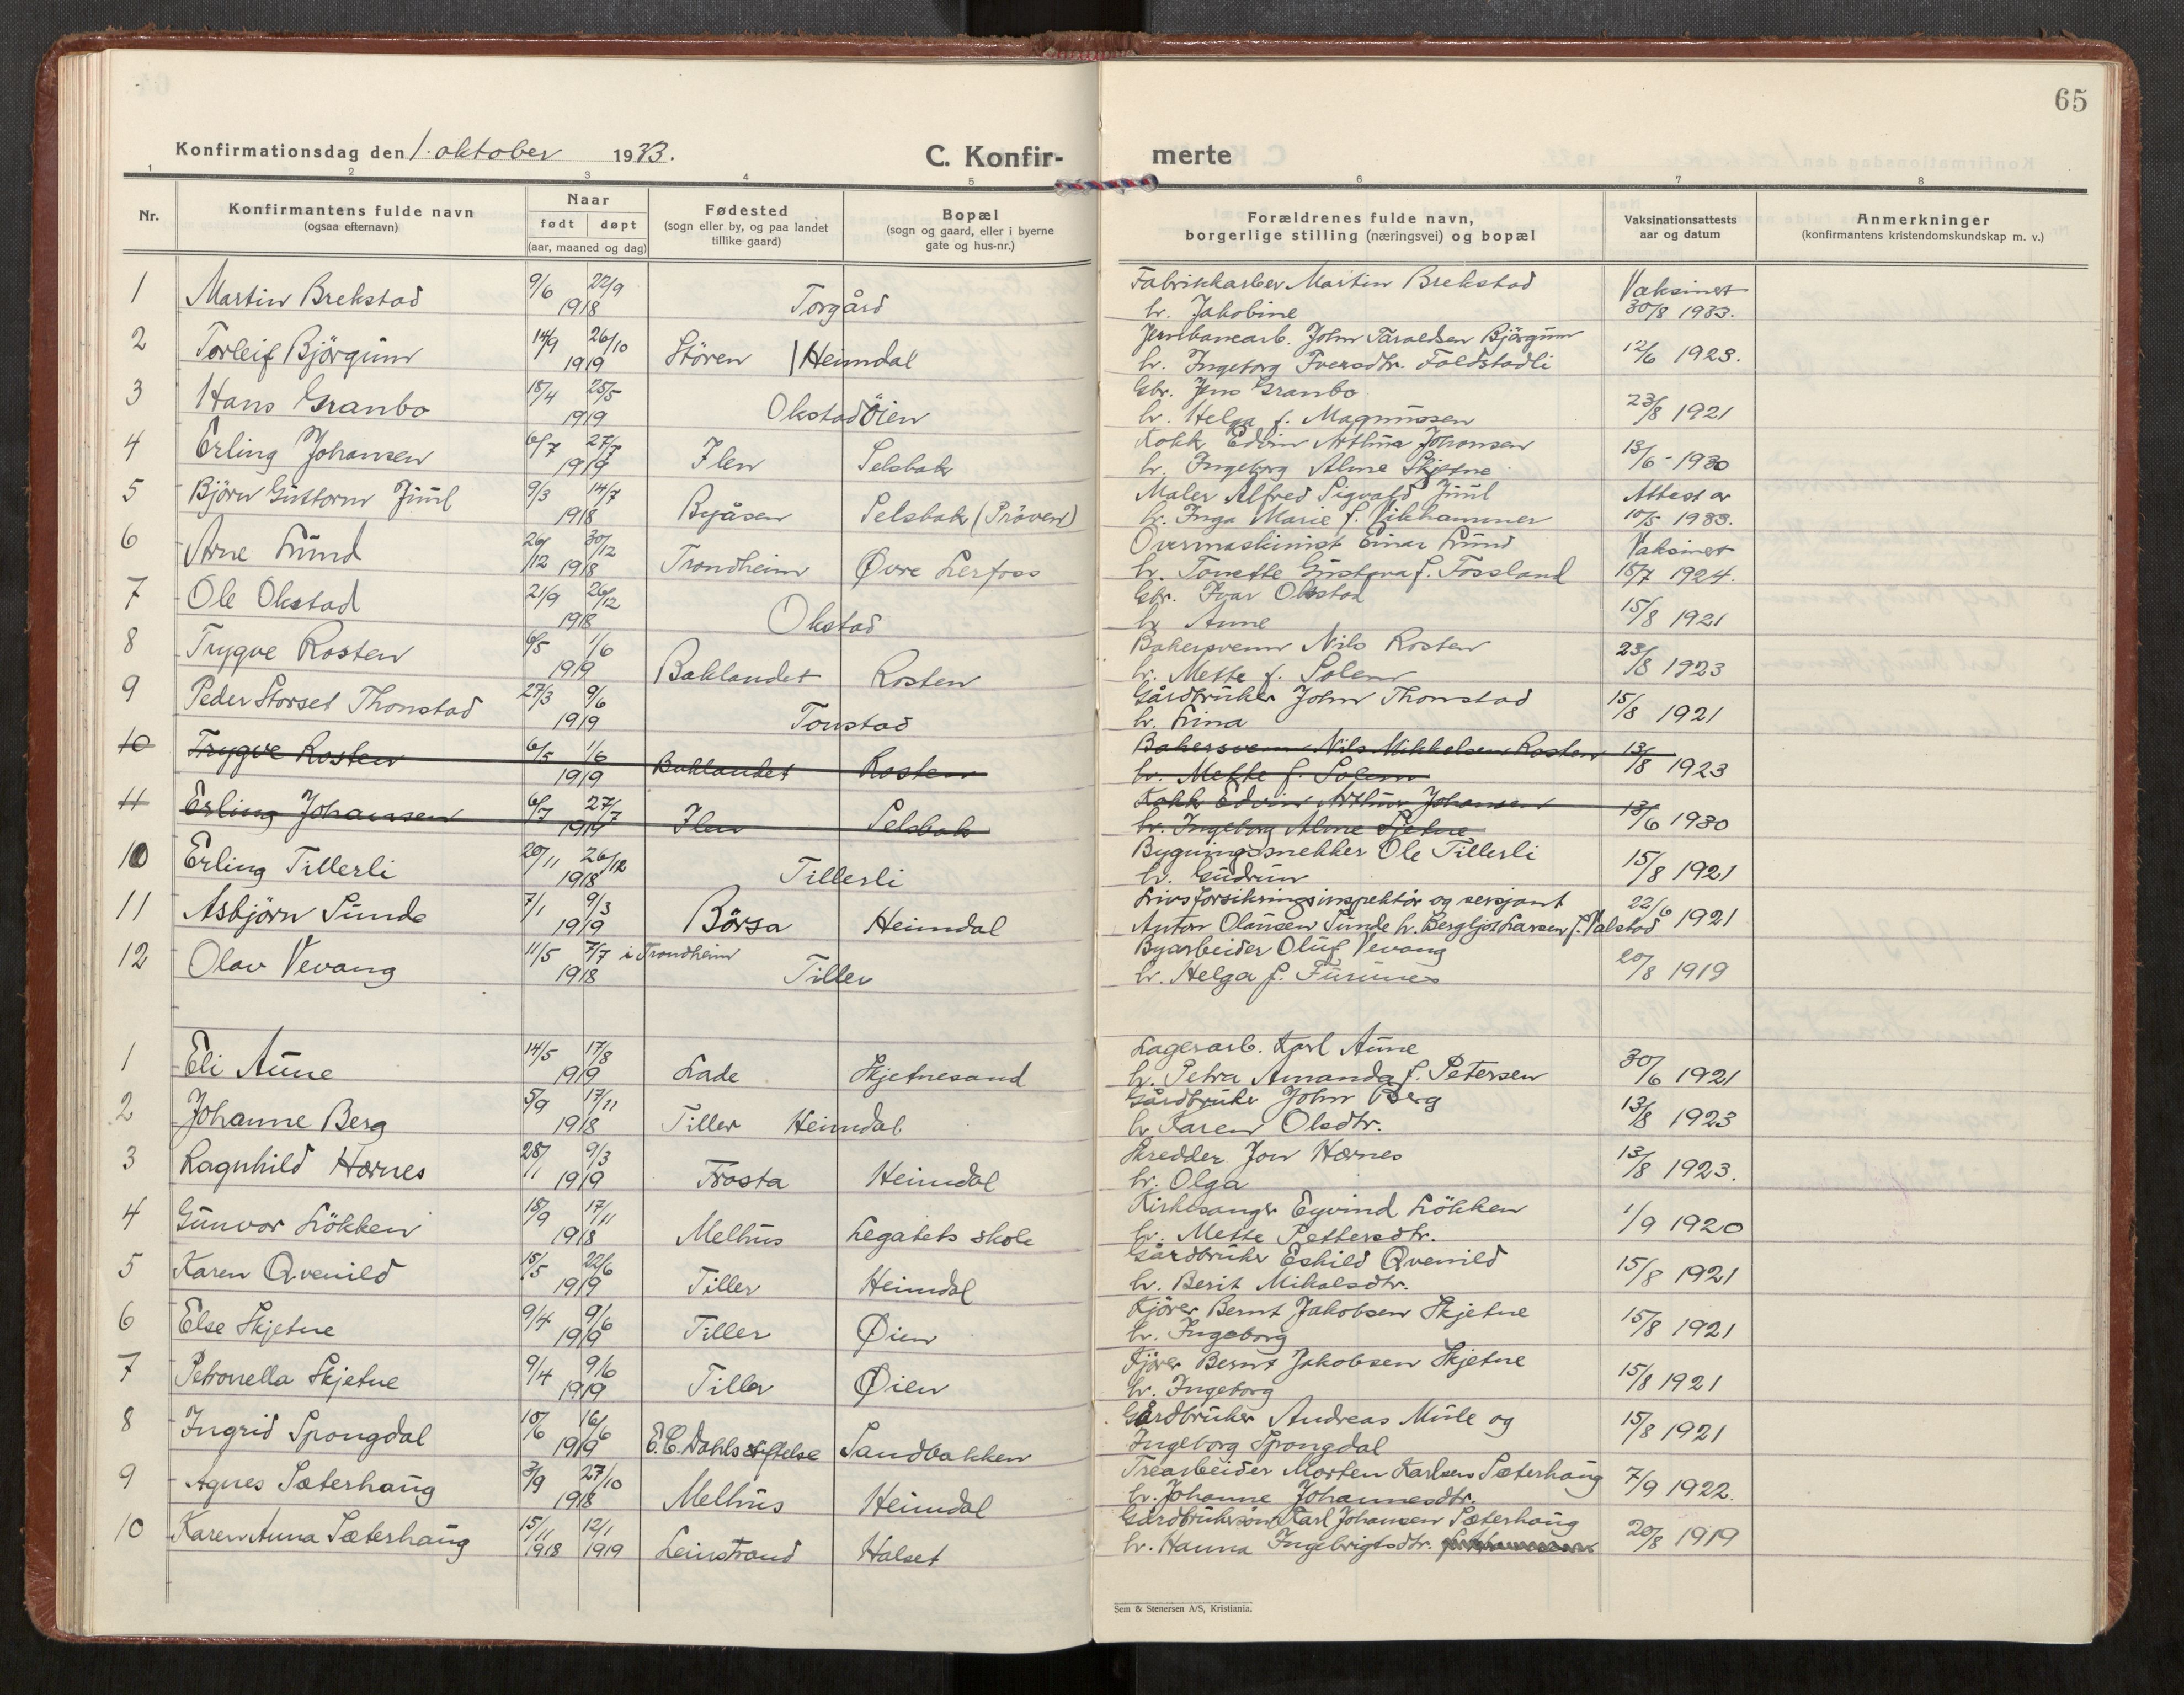 65
Konfirmationsdag den 1. oktober 1933. C. Konfir- merte
1 2 3 4 5 6 7 8
Nr. Konfirmantens fulde navn (ogsaa efternavn)
Naar født døpt (aar, maaned og dag)
Fødested (sogn eller by, og paa landet tillike gaard)
Bopæl (sogn og gaard, eller i byerne gate og hus-nr.)
Forældrenes fulde navn, borgerlige stilling (næringsvei) og bopæl
Vaksinationsattests aar og datum
Anmerkninger (konfirmantens kristendomskundskap m. v.)
1 Martin Brekstad 9/6 22/9 1918 Torgård Fabrikkarber Martin Brekstad Vaksinert
h. Jakobine 30/8 1933.
2 Torleif Björgum 14/9 26/10 1919 Stören Heimdal Jernbanearb. John Taraldsen Björgum
h. Ingeborg Iversdtr. Foldstadli 12/6 1923.
3 Hans Granbo 15/4 25/5 1919 Okstadöien Gbr. Jens Granbo
h. Helga f. Magnussen 23/8 1921
4 Erling Johansen 6/7 27/7 1919 Ilen Selsbak Kokk Edvin Arthur Johansen
h. Ingeborg Alme Skjetne 13/6 1930
5 Björn Guttorm Juul 9/3 14/7 1918 Byåsen Selsbak (Pröven) Maler Alfred Sigvald Juul Attest av
h. Inga Marie f. Vikhammer 10/5 1933.
6 Arne Lund 26/12 30/12 1918 Trondheim Øvre Lerfoss Overmaskinist Einar Lund Vaksinert
h. Tonette Gustava f. Fossland 15/7 1924.
7 Ole Okstad 21/9 26/12 1918 Okstad Gbr. Ivar Okstad
h. Anne 15/8 1921
8 Trygve Rosten 6/5 1/6 1919 Baklandet Rosten Bakersvenn Nils Rosten
h. Mette f. Solem 23/8 1923
9 Peder Storset Thonstad 27/3 9/6 1919 Tonstad Gårdbruker John Thonstad
h. Lina 15/8 1921
10 Trygve Rosten 6/5 1/6 1919 Baklandet Rosten Bakersvenn Nils Mikkelsen Rosten
h. Mette f. Solem 13/8 1923
11 Erling Johansen 6/7 27/7 1919 Ilen Selsbak Kokk Edvin Arthur Johansen
h. Ingeborg Alme Sjetne 13/6 1930
10 Erling Tillerli 20/11 26/12 1918 Tillerli Bygningssnekker Ole Tillerli
h. Gudrun 15/8 1921
11 Asbjörn Sunde 7/1 9/3 1919 Börsa Heimdal Livsforsikringsinspektör og sersjant
Anton Olausen Sunde h. Bergljot Larsen f. Valstad 22/6 1921
12 Olav Vevang 11/5 7/7 i Trondheim 1918 Tiller Byarbeider Oluf Vevang
h. Helga f. Furunes 20/8 1919
1 Eli Aune 14/5 17/8 1919 Lade Skjetnesand Lagerarb. Karl Aune
h. Petra Amanda f. Petersen 30/6 1921
2 Johanne Berg 5/9 17/11 1918 Tiller Heimdal Gårdbruker John Berg
h. Karen Olsdtr. 13/8 1923
3 Ragnhild Hornes 28/1 9/3 1919 Frosta Heimdal Skredder Jon Hornes
h. Olga 13/8 1923.
4 Gunvor Lökken 18/9 17/11 1918 Melhus Legatets skole Kirkesanger Eyvind Lökken
h. Mette Pettersdtr. 1/9 1920
5 Karen Qvenild 15/5 22/6 1919 Tiller Heimdal Gårdbruker Eskild Qvenild
h. Berit Mikalsdtr. 15/8 1921
6 Else Skjetne 9/4 9/6 1919 Tiller Øien Kjörer Bernt Jakobsen Skjetne
h. Ingeborg 15/8 1921
7 Petronella Skjetne 9/4 9/6 1919 Tiller Øien Kjörer Bernt Jakobsen Skjetne
h. Ingeborg 15/8 1921
8 Ingrid Spongdal 10/6 16/6 1919 E.C. Dahls stiftelse Sandbakken Gårdbruker Andreas Mule og
Ingeborg Spongdal 15/8 1921
9 Agnes Sæterhaug 3/9 27/10 1918 Melhus Heimdal Trearbeider Morten Karlsen Sæterhaug
h. Johanne Johannesdtr. 7/9 1922.
10 Karen Anna Sæterhaug 15/11 1918 12/1 1919 Leinstrand Halset Gårdbrukersönn Karl Johansen Sæterhaug
h. Hanna Ingebrigtsdtr. 20/8 1919
Sem & Stenersen A/S, Kristiania.